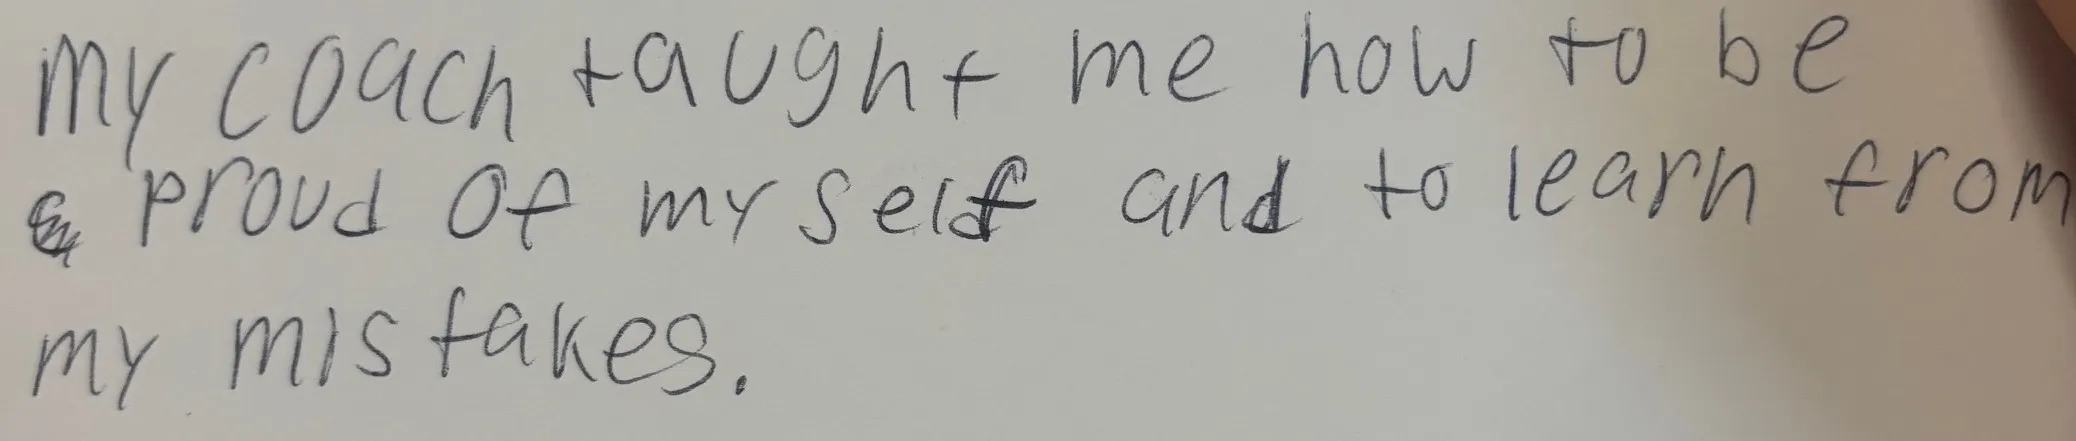 my coach taught me how to be
proud of my self and to learn from
my mistakes.